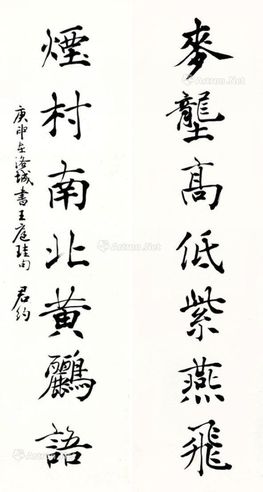 麥壟高低紫燕飛
煙村南北黃鸝語
庚申在海城書王庭珪句 君約